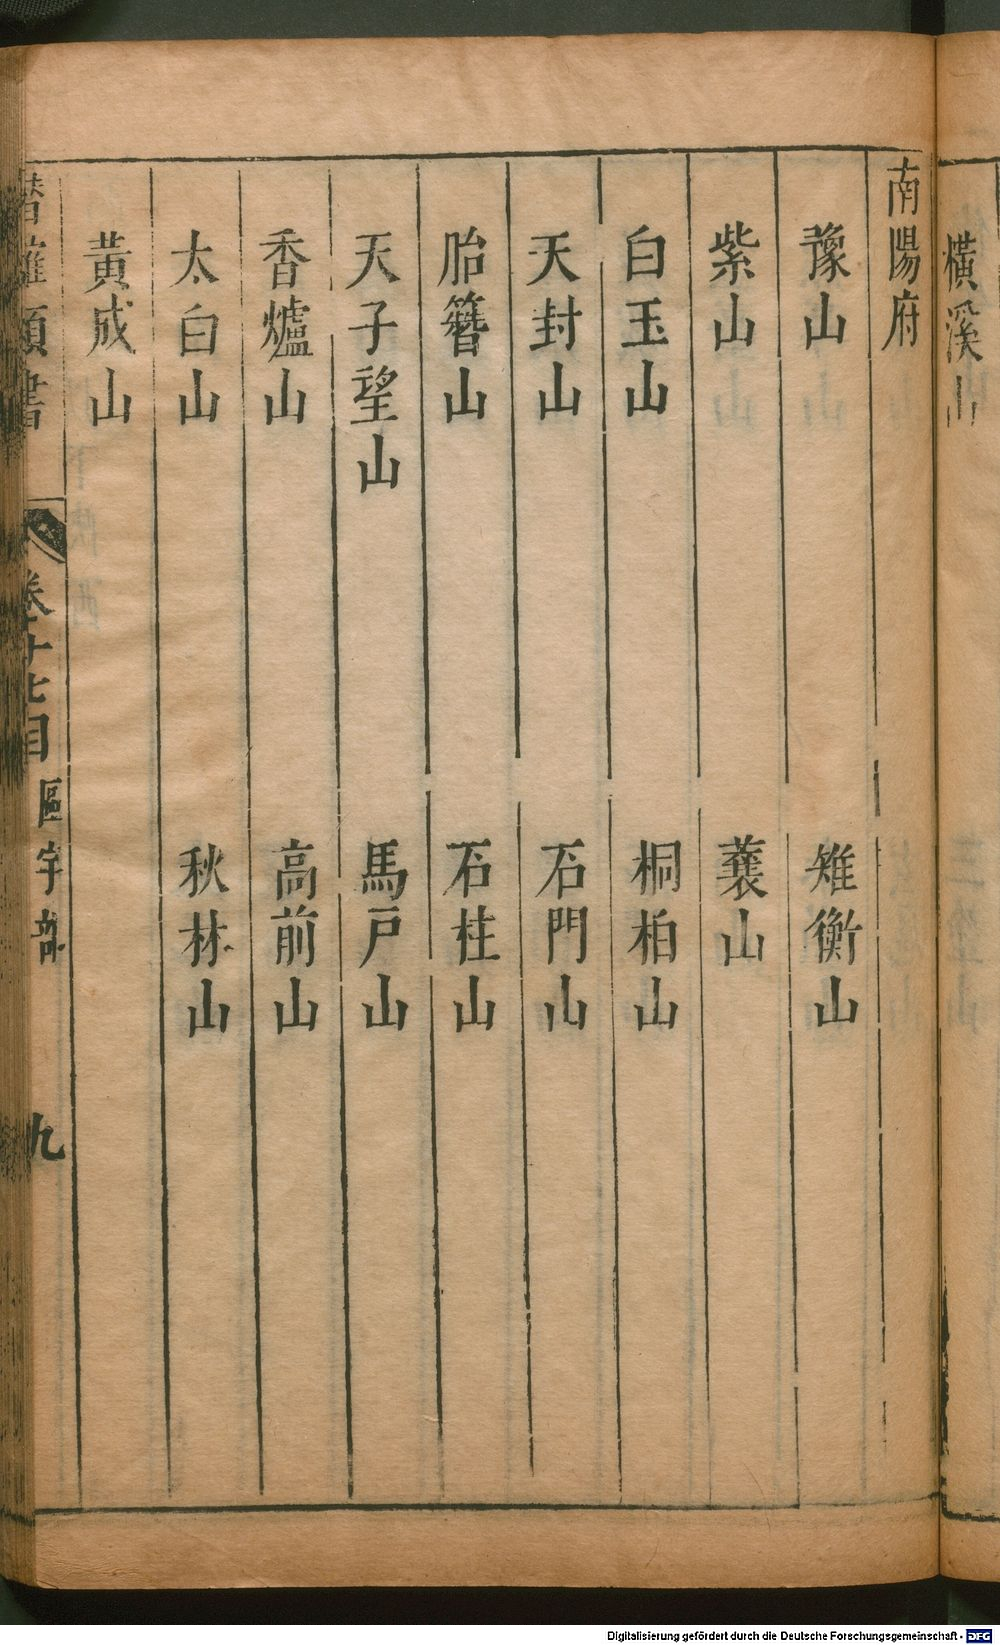 橫溪山
南陽府
豫山 雉衡山
紫山 蘘山
白玉山 桐柏山
天封山 石門山
胎簪山 石柱山
天子望山 馬戸山
香爐山 高前山
太白山 秋林山
黃成山
卷十七目 區宇部 九
Digitalisierung gefördert durch die Deutsche Forschungsgemeinschaft - DFG